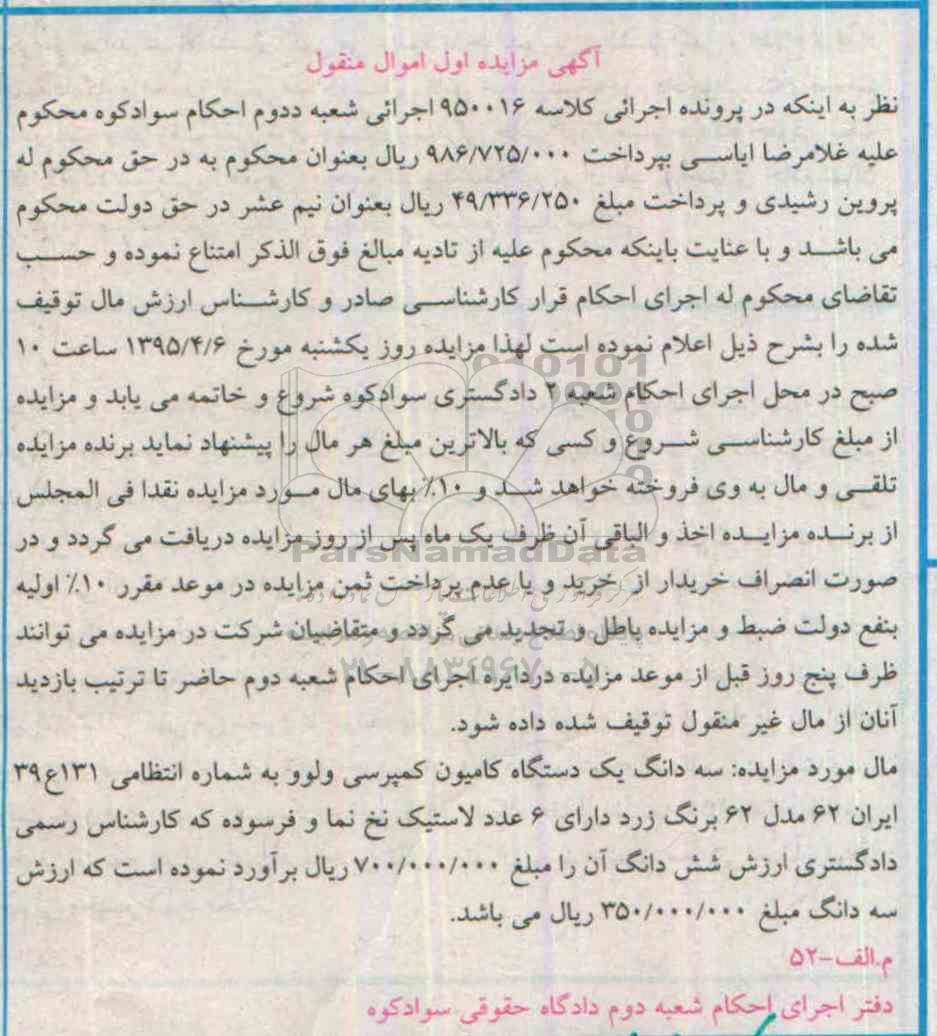 آگهی مزایده اول اموال منقول
نظر به اینکه در پرونده اجرائی کلاسه ۹۵۰۰۱۶ اجرائی شعبه ددوم احکام سوادکوه محکوم
علیه غلامرضا ایاسی بپرداخت ۹۸۶/۷۲۵/۰۰۰ ریال بعنوان محکوم به در حق محکوم له
پروین رشیدی و پرداخت مبلغ ۴۹/۳۳۶/۲۵۰ ریال بعنوان نیم عشر در حق دولت محکوم
می باشد و با عنایت باینکه محکوم علیه از تادیه مبالغ فوق الذکر امتناع نموده و حسب
تقاضای محکوم له اجرای احکام قرار کارشناسی صادر و کارشناس ارزش مال توقیف
شده را بشرح ذیل اعلام نموده است لهذا مزایده روز یکشنبه مورخ ۱۳۹۵/۴/۶ ساعت ۱۰
صبح در محل اجرای احکام شعبه ۲ دادگستری سوادکوه شروع و خاتمه می یابد و مزایده
از مبلغ کارشناسی شروع و کسی که بالاترین مبلغ هر مال را پیشنهاد نماید برنده مزایده
تلقی و مال به وی فروخته خواهد شد و ۱۰٪ بهای مال مورد مزایده نقدا فی المجلس
از برنده مزایده اخذ و الباقی آن ظرف یک ماه پس از روز مزایده دریافت می گردد و در
ParsNamadData
صورت انصراف خریدار از خرید و یا عدم پرداخت ثمن مزایده در موعد مقرر ۱۰٪ اولیه
بنفع دولت ضبط و مزایده باطل و تجدید می گردد و متقاضیان شرکت در مزایده می توانند
ظرف پنج روز قبل از موعد مزایده دردایره اجرای احکام شعبه دوم حاضر تا ترتیب بازدید
آنان از مال غیر منقول توقیف شده داده شود.
مال مورد مزایده: سه دانگ یک دستگاه کامیون کمپرسی ولوو به شماره انتظامی ۱۳۱ع۳۹
ایران ۶۲ مدل ۶۲ برنگ زرد دارای ۶ عدد لاستیک نخ نما و فرسوده که کارشناس رسمی
دادگستری ارزش شش دانگ آن را مبلغ ۷۰۰/۰۰۰/۰۰۰ ریال برآورد نموده است که ارزش
سه دانگ مبلغ ۳۵۰/۰۰۰/۰۰۰ ریال می باشد.
م.الف-۵۲
دفتر اجرای احکام شعبه دوم دادگاه حقوقی سوادکوه